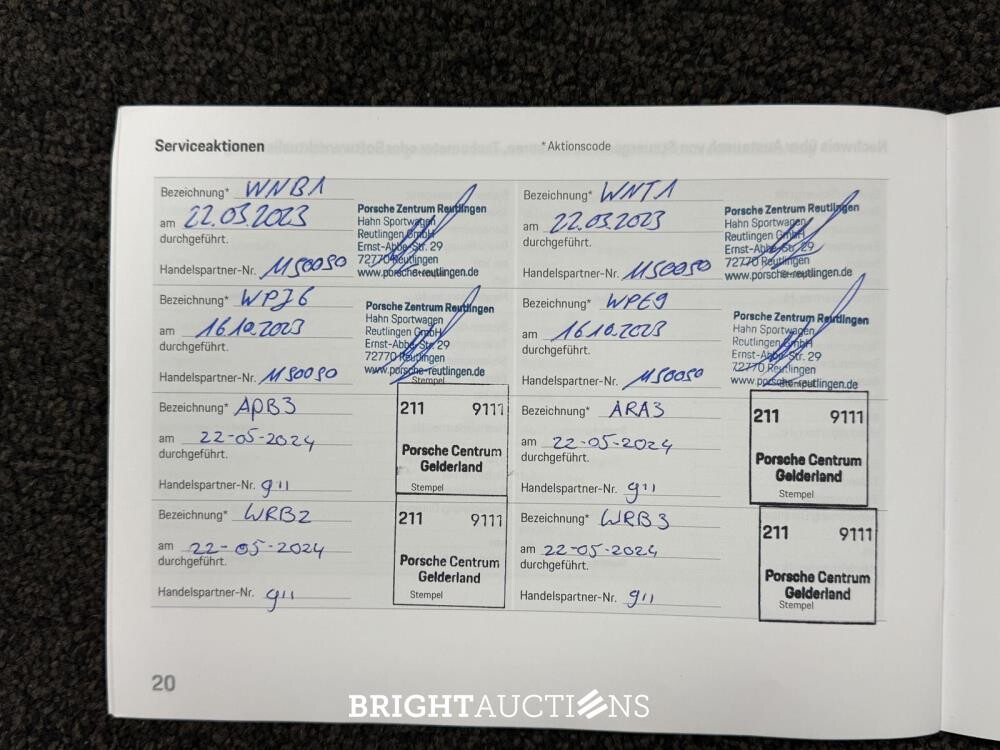 Serviceaktionen
* Aktionscode
Bezeichnung* WNB1
am 22.03.2023
durchgeführt.
Handelspartner-Nr. 1150050
Porsche Zentrum Reutlingen
Hahn Sportwagen
Reutlingen GmbH
Ernst-Abbe-Str. 29
72770 Reutlingen
www.porsche-reutlingen.de
Bezeichnung* WNT1
am 22.03.2023
durchgeführt.
Handelspartner-Nr. 1150050
Porsche Zentrum Reutlingen
Hahn Sportwagen
Reutlingen GmbH
Ernst-Abbe-Str. 29
72770 Reutlingen
www.porsche-reutlingen.de
Bezeichnung* WPJ6
am 16.10.2023
durchgeführt.
Handelspartner-Nr. 1150050
Porsche Zentrum Reutlingen
Hahn Sportwagen
Reutlingen GmbH
Ernst-Abbe-Str. 29
72770 Reutlingen
www.porsche-reutlingen.de
Stempel
Bezeichnung* WPE9
am 16.10.2023
durchgeführt.
Handelspartner-Nr. 1150050
Porsche Zentrum Reutlingen
Hahn Sportwagen
Reutlingen GmbH
Ernst-Abbe-Str. 29
72770 Reutlingen
www.porsche-reutlingen.de
Bezeichnung* APB3
am 22-05-2024
durchgeführt.
Handelspartner-Nr. 911
211 9111
Porsche Centrum
Gelderland
Stempel
Bezeichnung* ARA3
am 22-05-2024
durchgeführt.
Handelspartner-Nr. 911
211 9111
Porsche Centrum
Gelderland
Stempel
Bezeichnung* WRB2
am 22-05-2024
durchgeführt.
Handelspartner-Nr. 911
211 9111
Porsche Centrum
Gelderland
Stempel
Bezeichnung* WRB3
am 22-05-2024
durchgeführt.
Handelspartner-Nr. 911
211 9111
Porsche Centrum
Gelderland
Stempel
20
BRIGHTAUCTIONS